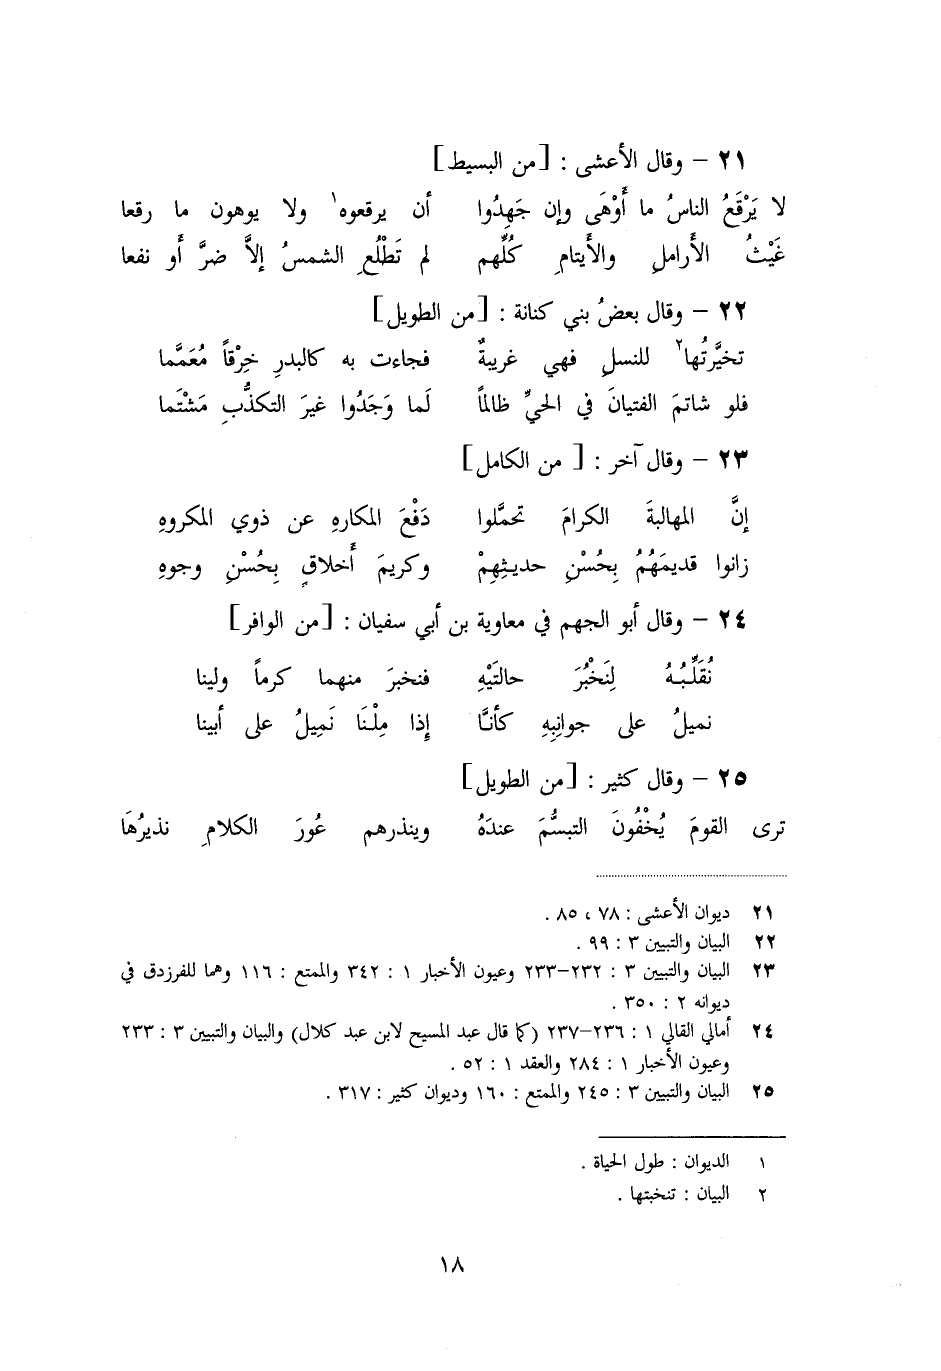 ٢١ – وقال الأعشى : [من البسيط]
لا يَرْقَعُ الناسُ ما أَوْهَى وإن جَهِدُوا أن يرقعوه١ ولا يوهون ما رقعا
غَيْثُ الأراملِ والأيتامِ كُلِّهم لم تَطْلُعِ الشمسُ إلاَّ ضرَّ أو نفعا
٢٢ – وقال بعضُ بني كنانة : [من الطويل]
تخيَّرتُها٢ للنسلِ فهي غريبةٌ فجاءت به كالبدرِ خِرْقاً مُعَمَّما
فلو شاتمَ الفتيانَ في الحيِّ ظالماً لَما وَجَدُوا غيرَ التكذُّبِ مَشْتَما
٢٣ – وقال آخر : [ من الكامل]
إنَّ المهالبةَ الكرامَ تحمَّلوا دَفْعَ المكارهِ عن ذوي المكروهِ
زانوا قديمَهُمُ بِحُسْنِ حديثِهِمْ وكريمَ أخلاقٍ بِحُسْنِ وجوهِ
٢٤ – وقال أبو الجهم في معاوية بن أبي سفيان : [من الوافر]
نُقَلِّبُهُ لِنَخْبُرَ حالتَيْهِ فنخبرَ منهما كرماً ولينا
نميلُ على جوانِبِهِ كأنَّا إِذا مِلْنَا نَمِيلُ على أبينا
٢٥ – وقال كثير : [من الطويل]
ترى القومَ يُخْفُونَ التبسُّمَ عندَهُ وينذرهم عُورَ الكلامِ نذيرُهَا
٢١ ديوان الأعشى : ٧٨ ، ٨٥ .
٢٢ البيان والتبيين ٣ : ٩٩ .
٢٣ البيان والتبيين ٣ : ٢٣٢–٢٣٣ وعيون الأخبار ١ : ٣٤٢ والممتع : ١١٦ وهما للفرزدق في
ديوانه ٢ : ٣٥٠ .
٢٤ أمالي القالي ١ : ٢٣٦–٢٣٧ (كما قال عبد المسيح لابن عبد كلال) والبيان والتبيين ٣ : ٢٣٣
وعيون الأخبار ١ : ٢٨٤ والعقد ١ : ٥٢ .
٢٥ البيان والتبيين ٣ : ٢٤٥ والممتع : ١٦٠ وديوان كثير : ٣١٧ .
١ الديوان : طول الحياة .
٢ البيان : تنخبتها .
١٨